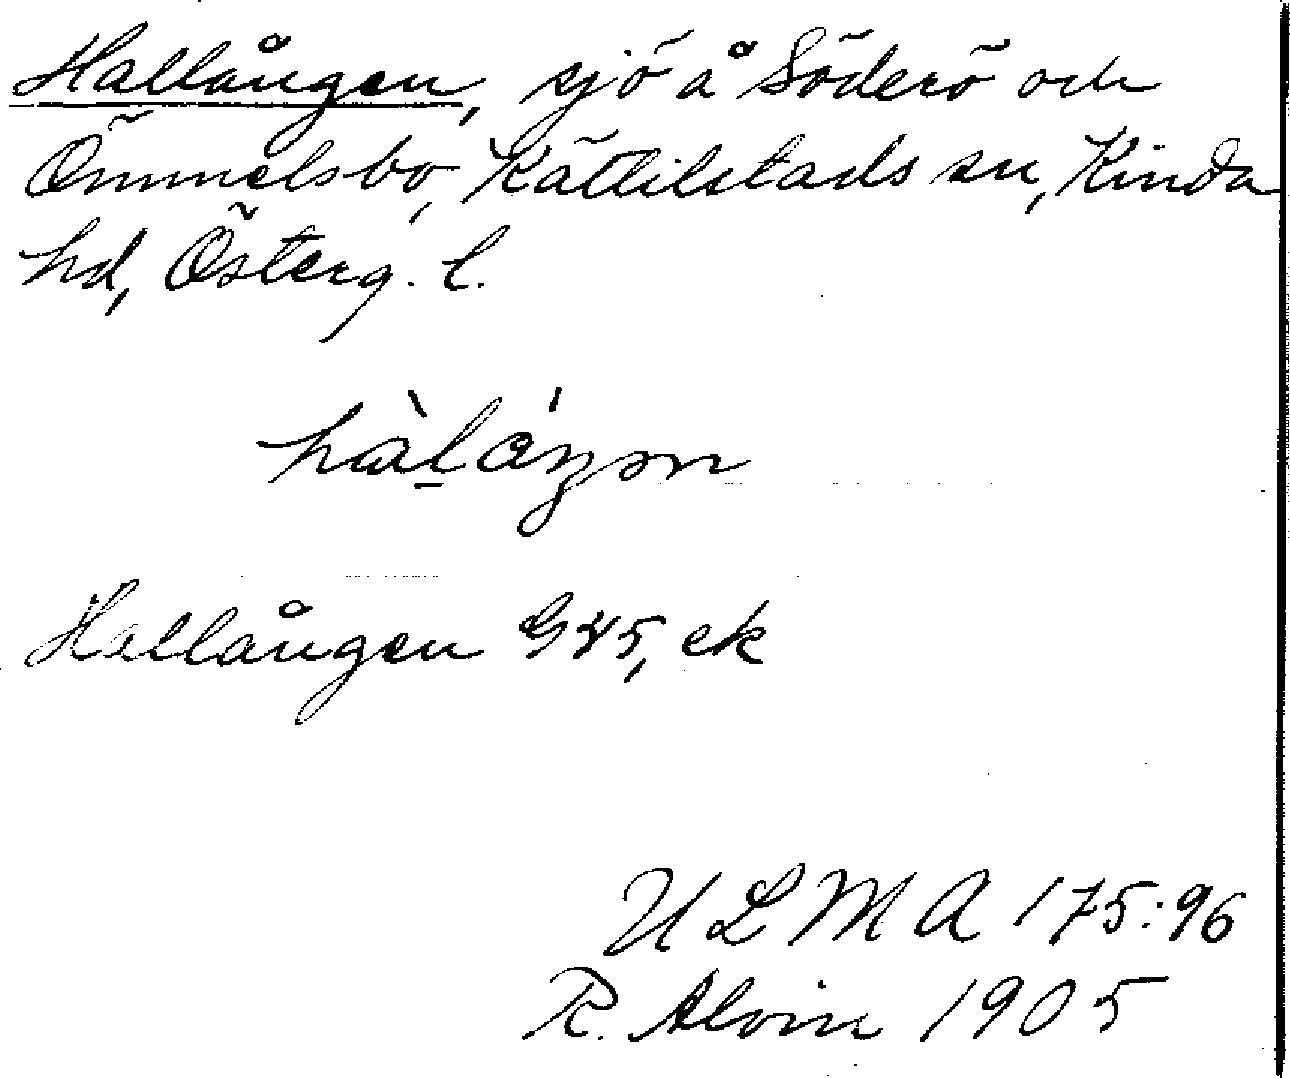 Hallången, sjö å Söderö och
Ömmelsbo, Kättilstads sn, Kinda
hd, Österg. l.
Hallången G45, ek
ULMA 175:96
R. Alvin 1905